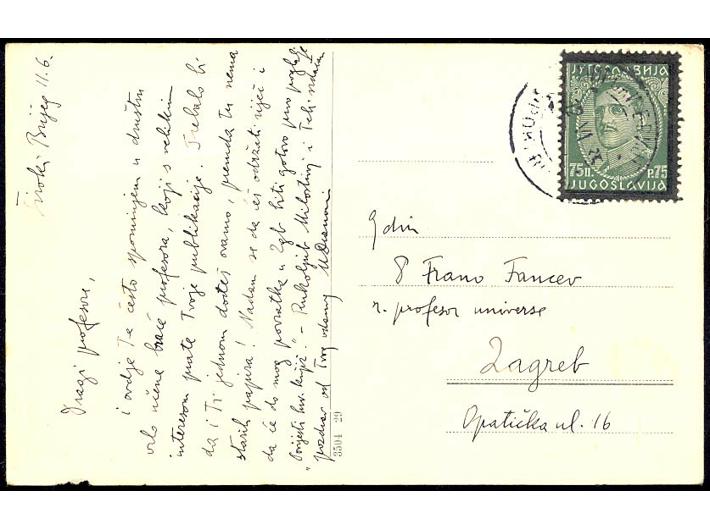 Široki Brijeg 11.6.
Dragi profesore,
i ovdje Te često spominjem u društvu
vrlo učene braće profesora, koji s velikim
interesom prate Tvoje publikacije. Trebalo bi
da i Ti jednom dođeš ovamo, premda Tu nema
starih papira! Nadam se da ćeš održati riječ i
da će do mog povratka u Zgb biti gotovo prvo poglavlje
"Povijesti hrv. knjiž." – Rukoljub Milostivoj i Teti
pozdrav od Tvog odanog
3504 29
ЈУГОСЛАВИЈА
75 П. P. 75
JUGOSLAVIJA
Gdin
Frano Fancev
r. profesor universe
Zagreb
Opatička ul. 16